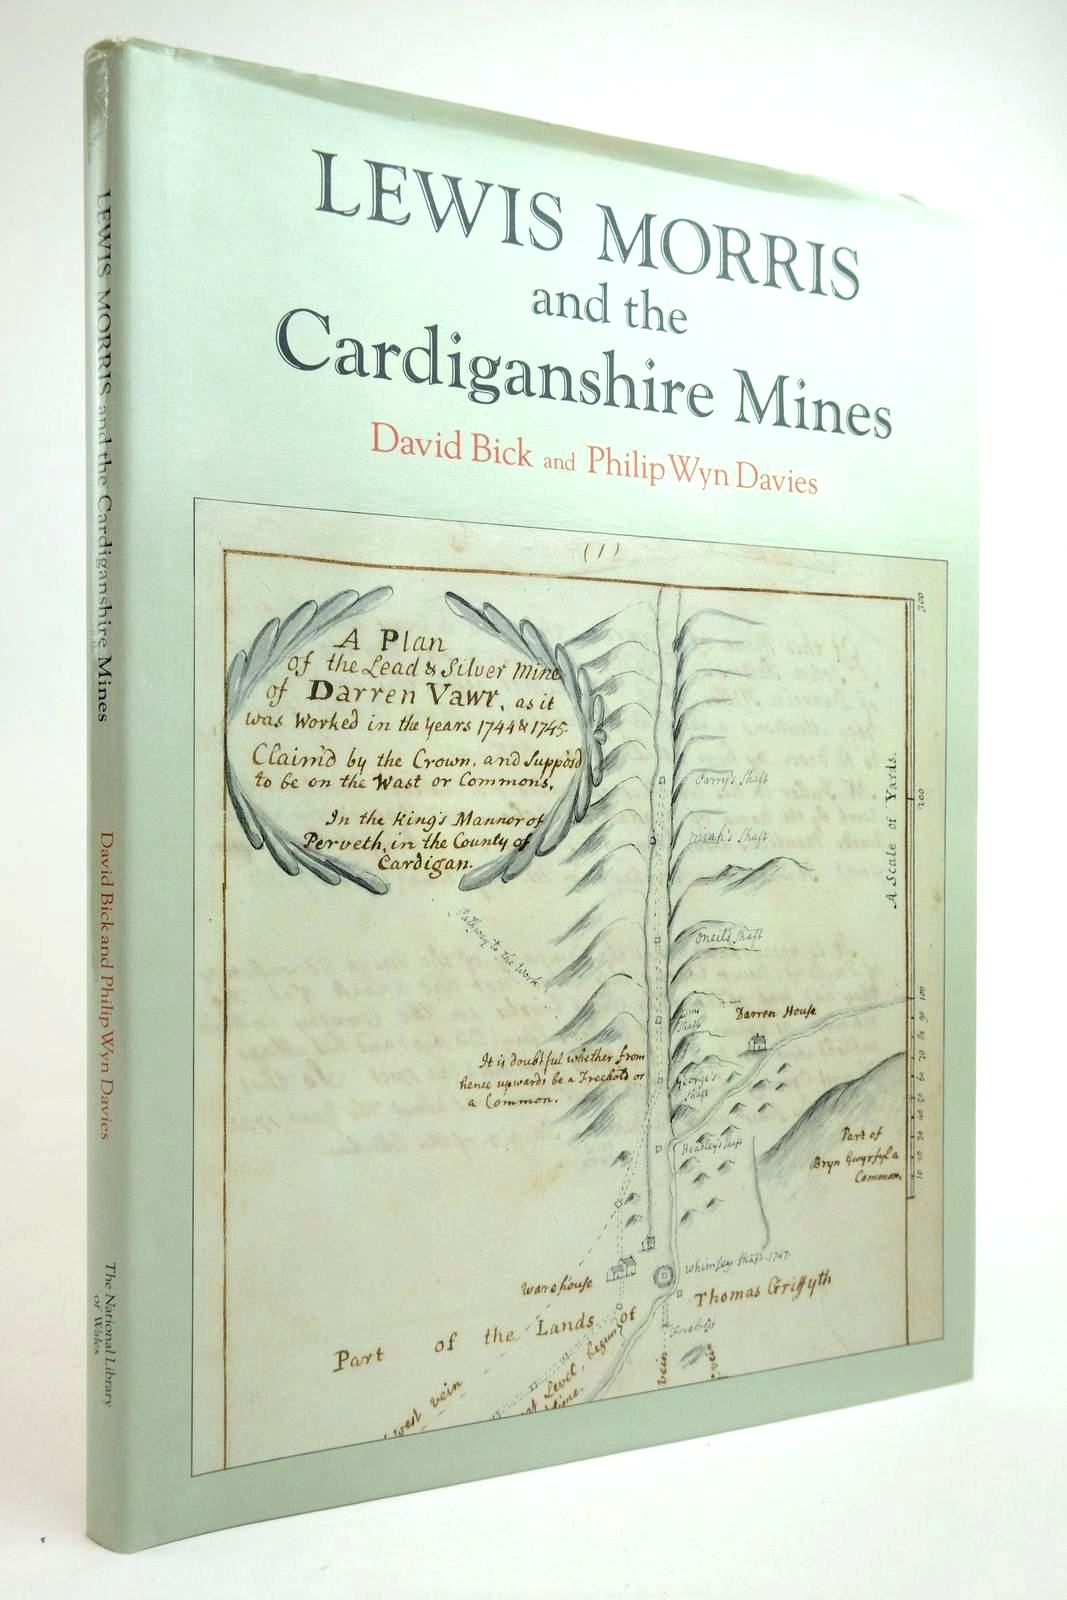 LEWIS MORRIS
and the
Cardiganshire Mines
David Bick and Philip Wyn Davies
LEWIS MORRIS and the Cardiganshire Mines
David Bick and Philip Wyn Davies
The National Library
of Wales
(1)
A Plan
of the Lead & Silver Mine
of Darren Vawr, as it
was Worked in the Years 1744 & 1745.
Claim'd by the Crown, and Suppos'd
to be on the Wast or Commons,
In the King's Mannor of
Perveth, in the County of
Cardigan.
300
200
A Scale of Yards.
100
90
80
70
60
50
40
30
20
10
Parry's Shaft
Oneil's Shaft
Pathway to the Work
Shaft
Darren House
It is doubtful whether from
hence upwards be a Freehold or
a Common.
George's
Shaft
Headley's Shaft
Part of
Bryn Gwyrfyl a
Common.
Whimsey Shaft. 1747.
Warehouse
Thomas Griffyth
Part of the Lands of
Level, begun
west vein
vein
vein